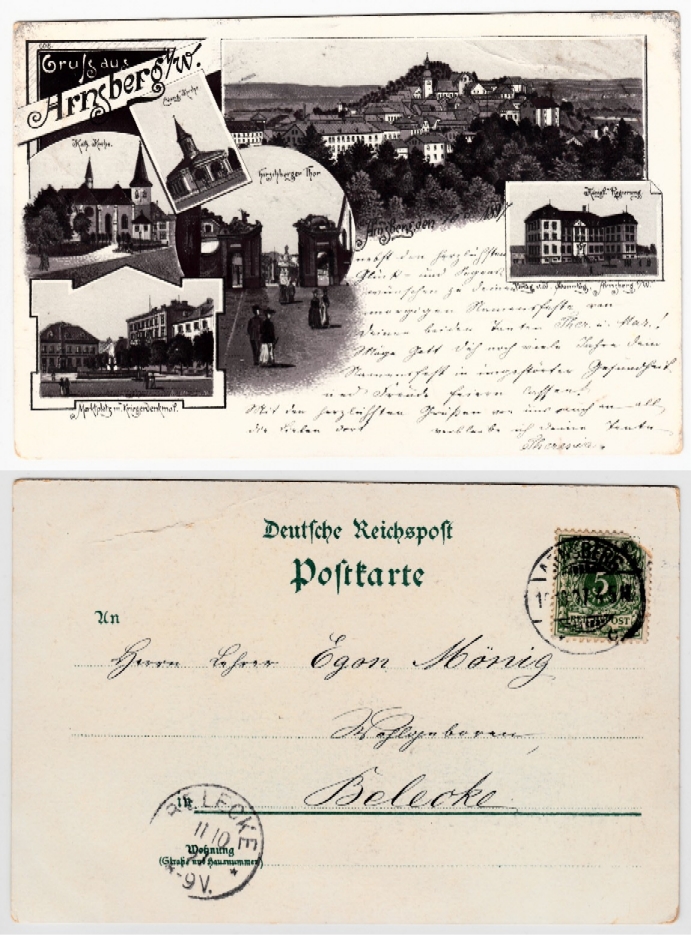 Gruß aus
Arnsberg i/W.
Evang. Kirche.
Kath. Kirche.
Hirschberger Thor
Königl. Regierung
Arnsberg, den
Arnsberg i/W.
Marktplatz m. Kriegerdenkmal.
nebst den herzlichsten
Glück- und Segens-
wünschen zu deinem
morgigen Namensfeste von
deinen beiden Tanten Ther. u. Mar.!
Möge Gott dich noch viele Jahre dein
Namensfest in ungestörter Gesundheit
und Freude feiern lassen!
Mit den herzlichsten Grüßen von uns auch an all,
die Lieben dort verbleibe ich deine Tante
Theresia.
Deutsche Reichspost
Postkarte
ARNSBERG
5
REICHSPOST
An
Herrn Lehrer Egon Mönig
Wohlgeboren
in Belecke
BELECKE
11/10
8-9V.
Wohnung
(Straße und Hausnummer)